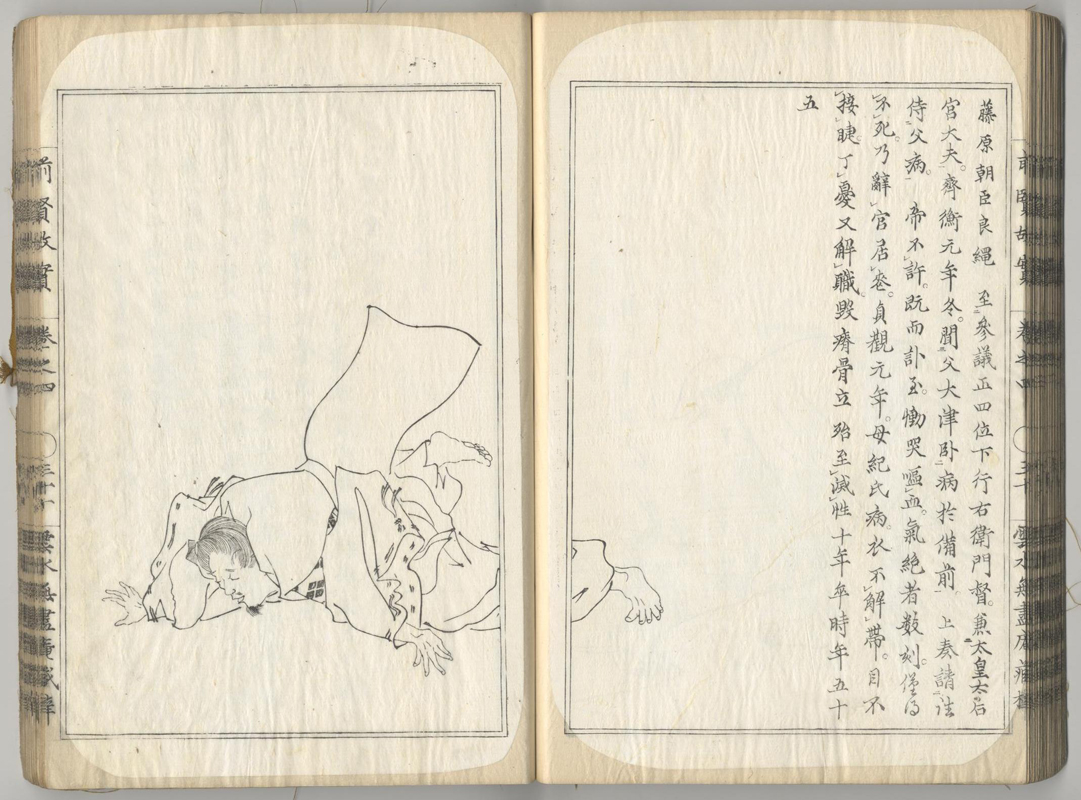 藤原朝臣良縄　至參議正四位下行右衛門督。兼太皇太后
宮大夫。齊衡元年冬。聞父大津臥病於備前。上奏請往
侍父病。帝不許。既而訃至。慟哭嘔血。氣絶者數刻。僅得
不死。乃辭官居喪。貞觀元年。母紀氏病。衣不解帶。目不
接睫。丁憂又解職。毀瘠骨立殆至滅性十年卒時年五十
五
前賢故實
卷之四
雲水無盡庵藏梓